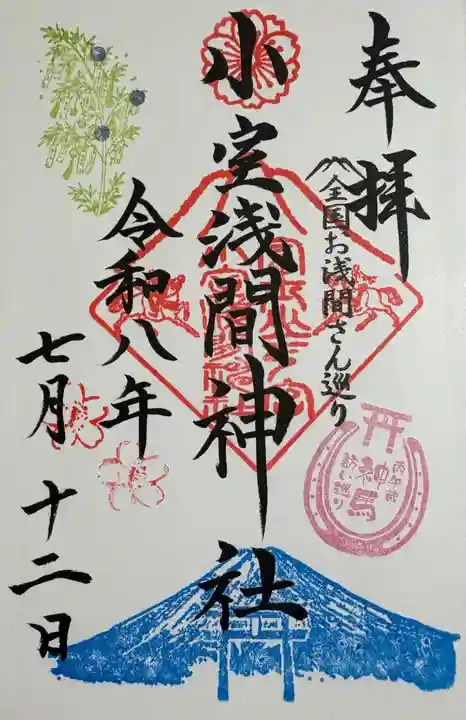 奉拝
全国お浅間さん巡り
小室浅間神社
令和八年
七月十二日
神馬